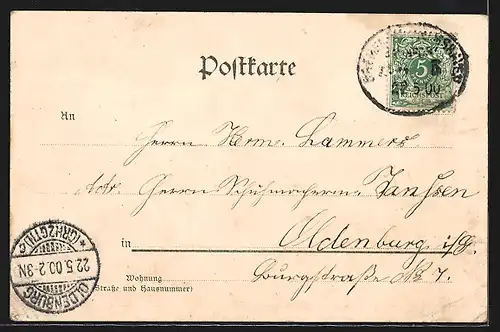 22 5 00
5
Postkarte
An
Herrn Herm. Lammers
Adr. Herrn Schuhmacherm. Janssen
in Oldenburg i/Gr.
Wohnung
(Straße und Hausnummer)
Burgstraße No 7.
OLDENBURG
(GRHZGTM)
22.5.00.2-3N